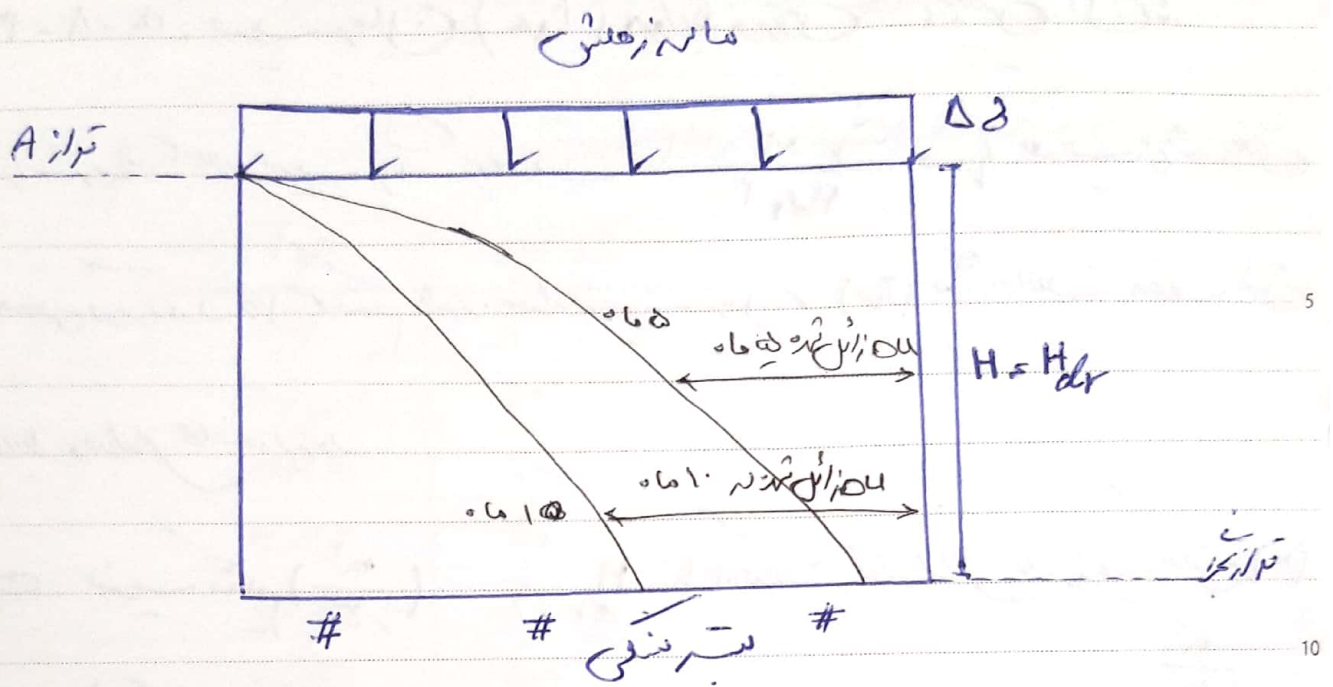 ماسه زهکش
Δδ
تراز A
5
۵ ماه
Δu زائل شده ۵ ماه
H = Hdr
Δu زائل شده ۱۰ ماه
۱۵ ماه
تراز
# # #
بستر سنگی
10